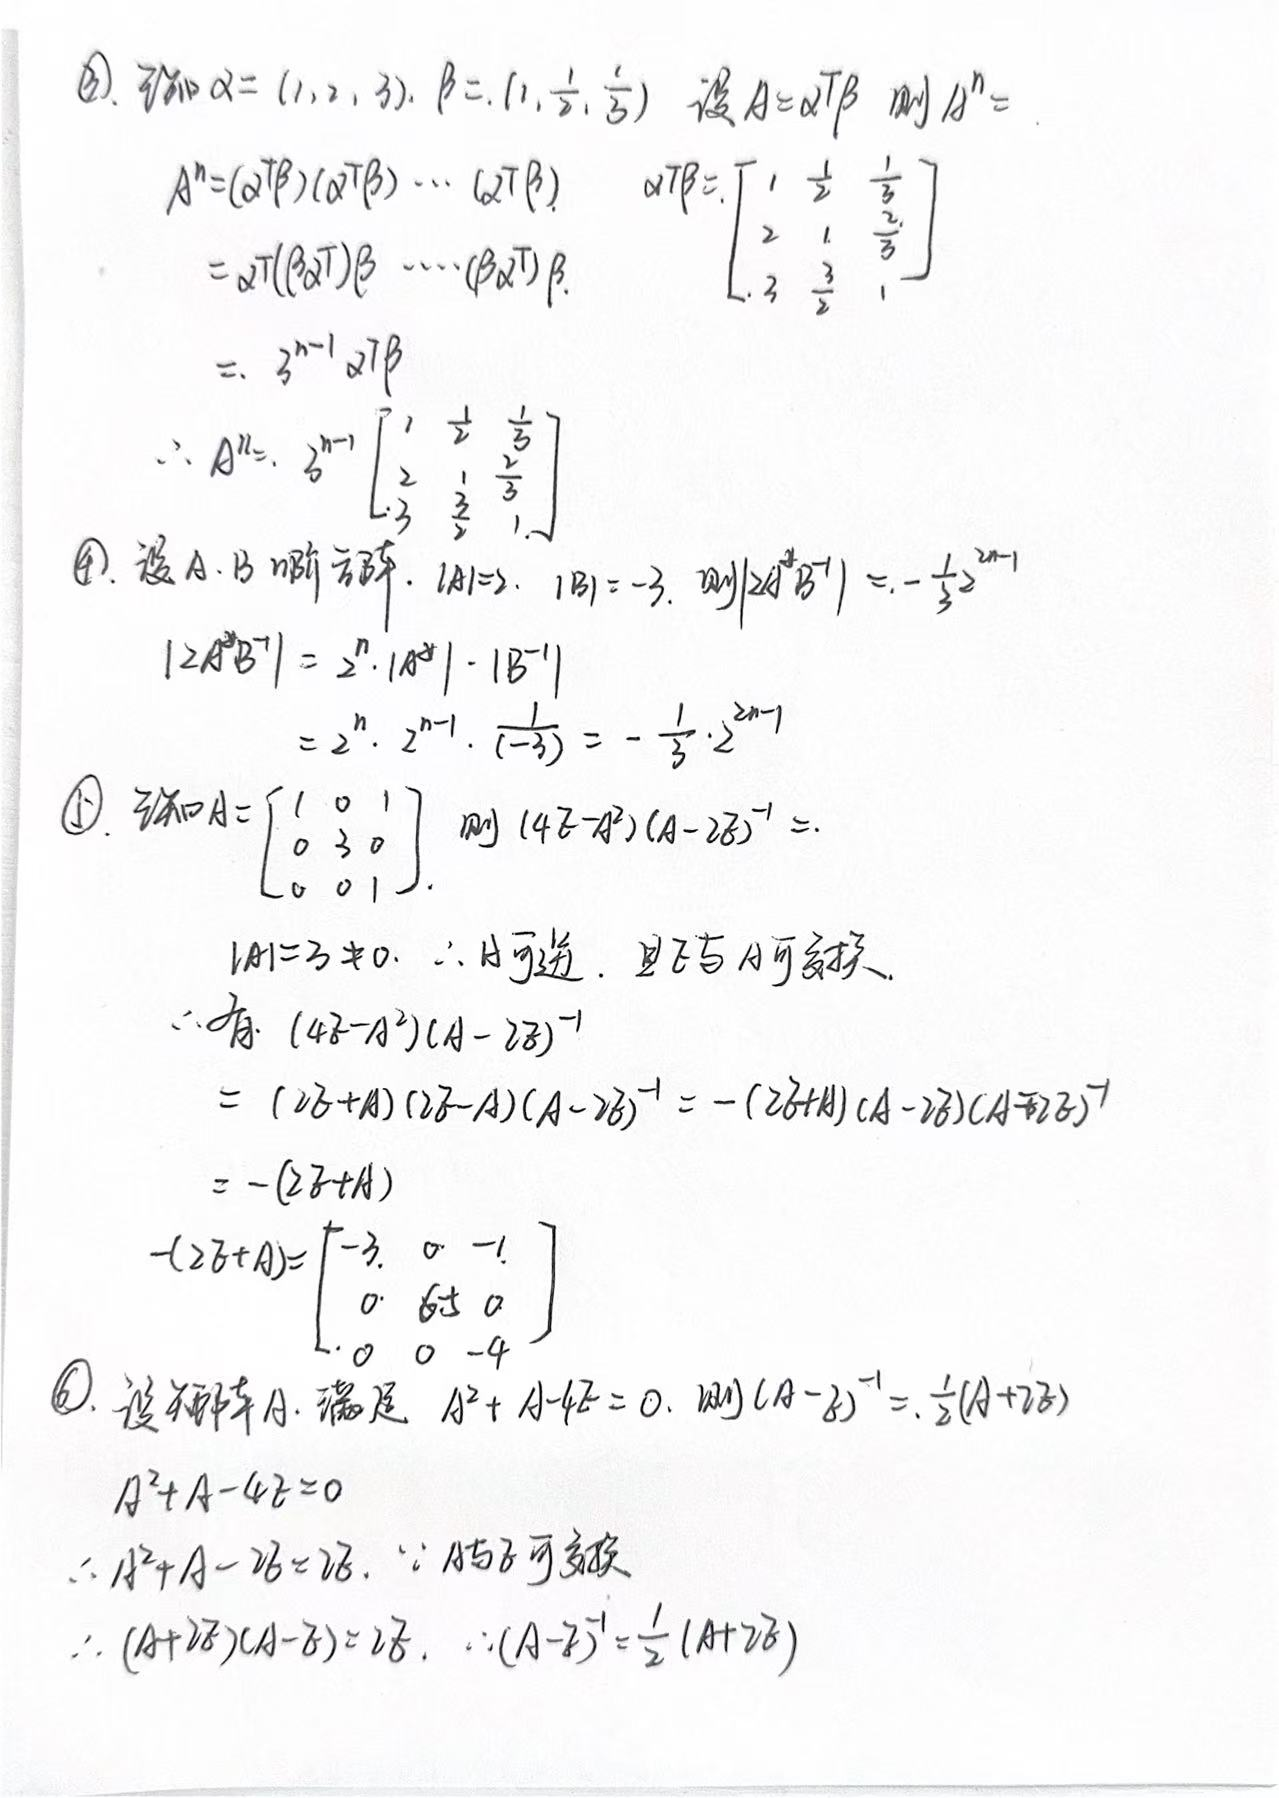 ③. 已知α=(1,2,3). β=.(1,1/2,1/3) 设A=αᵀβ 则Aⁿ=.
Aⁿ=(αᵀβ)(αᵀβ)⋯(αᵀβ). αᵀβ=.[1 1/2 1/3
2 1. 2/3
3 3/2 1]
=αᵀ(βαᵀ)β ⋯⋯(βαᵀ)β.
=. 3ⁿ⁻¹αᵀβ
∴ Aⁿ=. 3ⁿ⁻¹[1 1/2 1/3
2 1 2/3
3 3/2 1.]
④. 设A.B n阶方阵. |A|=2. |B|=-3. 则|2A*B⁻¹|=.-1/3 2²ⁿ⁻¹
|2A*B⁻¹|=2ⁿ·|A*|·|B⁻¹|
=2ⁿ·2ⁿ⁻¹·1/(-3)=-1/3·2²ⁿ⁻¹
⑤. 已知A=[1 0 1
0 3 0
0 0 1]. 则(4E-A²)(A-2E)⁻¹=.
|A|=3≠0. ∴A可逆. 且E与A可交换.
∴有. (4E-A²)(A-2E)⁻¹
=(2E+A)(2E-A)(A-2E)⁻¹=-(2E+A)(A-2E)(A-2E)⁻¹
=-(2E+A)
-(2E+A)=[-3. 0 -1.
0 5 0
0 0 -4]
⑥. 设 A.满足 A²+A-4E=0. 则(A-E)⁻¹=.1/2(A+2E)
A²+A-4E=0
∴A²+A-2E=2E. ∵A与E可交换
∴(A+2E)(A-E)=2E. ∴(A-E)⁻¹=1/2(A+2E)